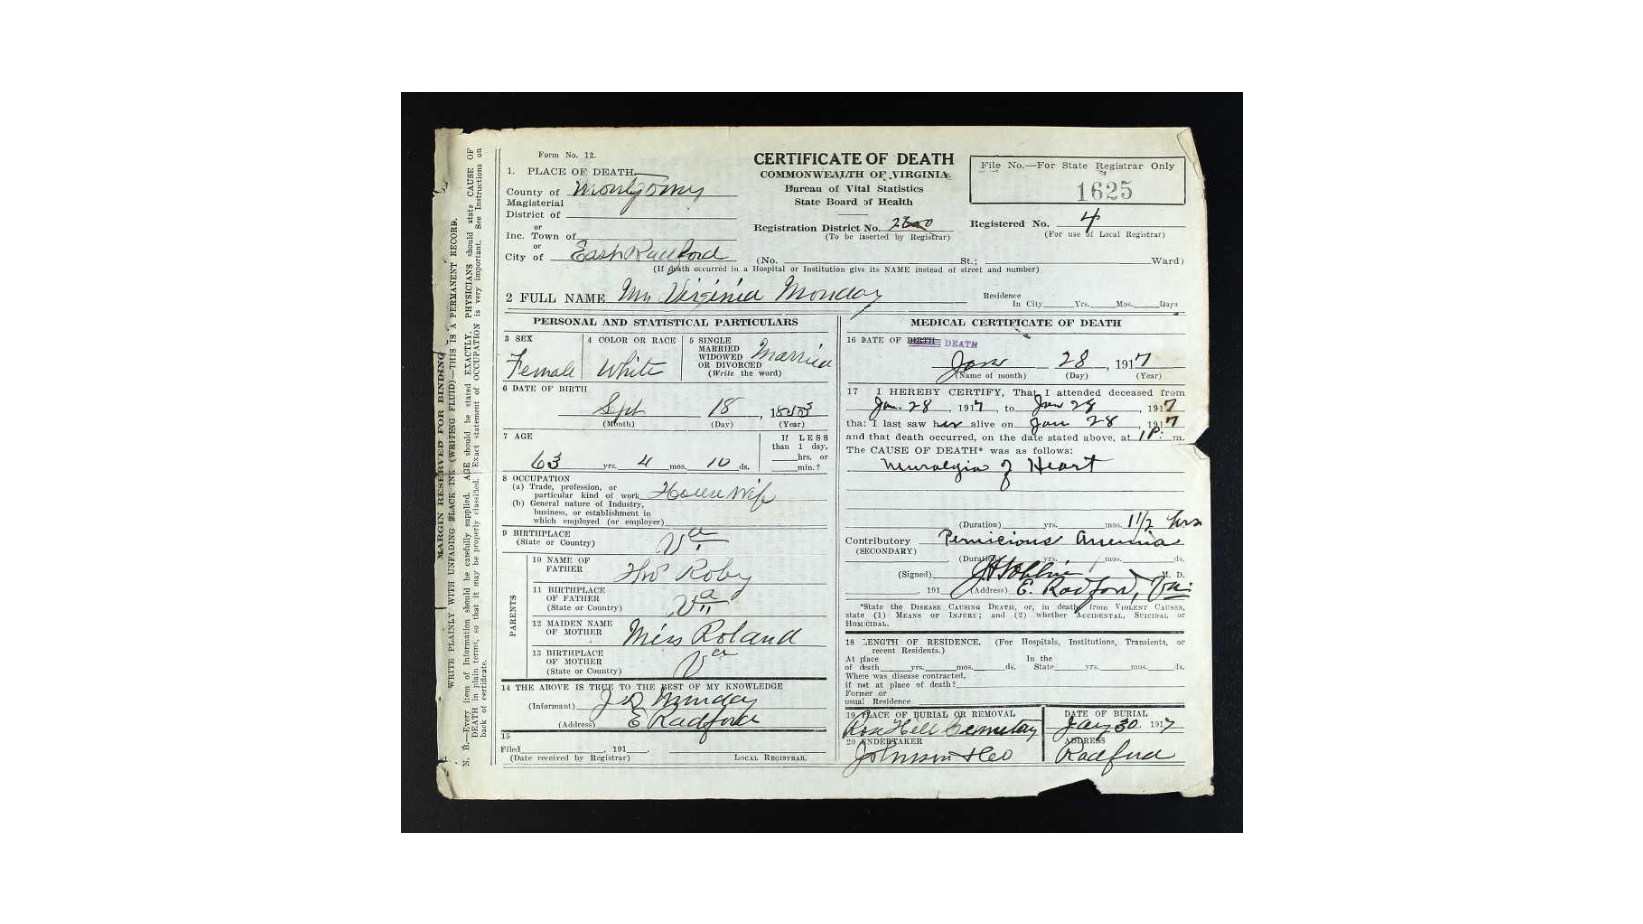 Form No. 12.
1. PLACE OF DEATH
County of Montgomry
Magisterial
District of
or
Inc. Town of
or
City of East Radford
CERTIFICATE OF DEATH
COMMONWEALTH OF VIRGINIA
Bureau of Vital Statistics
State Board of Health
Registration District No.
(To be inserted by Registrar)
File No.—For State Registrar Only
1625
Registered No. 4
(For use of Local Registrar)
(No. St.; Ward)
(If death occurred in a Hospital or Institution give its NAME instead of street and number)
2 FULL NAME Mrs Virginia Monday
Residence
In City Yrs. Mos. Days
PERSONAL AND STATISTICAL PARTICULARS
3 SEX
Female
4 COLOR OR RACE
White
5 SINGLE
MARRIED
WIDOWED
OR DIVORCED
(Write the word)
Married
6 DATE OF BIRTH
Sept 18, 1853
(Month) (Day) (Year)
7 AGE
63 yrs. 4 mos. 10 ds.
If LESS
than 1 day,
hrs. or
min.?
8 OCCUPATION
(a) Trade, profession, or
particular kind of work House Wife
(b) General nature of Industry,
business, or establishment in
which employed (or employer)
9 BIRTHPLACE
(State or Country) Va
PARENTS
10 NAME OF
FATHER Thos Roby
11 BIRTHPLACE
OF FATHER
(State or Country) Va
12 MAIDEN NAME
OF MOTHER Miss Roland
13 BIRTHPLACE
OF MOTHER
(State or Country) Va
14 THE ABOVE IS TRUE TO THE BEST OF MY KNOWLEDGE
(Informant) J D Munday
(Address) E Radford
15
Filed , 191
(Date received by Registrar) LOCAL REGISTRAR.
MEDICAL CERTIFICATE OF DEATH
16 DATE OF BIRTH DEATH
Jan 28, 1917
(Name of month) (Day) (Year)
17 I HEREBY CERTIFY, That I attended deceased from
Jan. 28, 1917, to Jan 28, 1917
that I last saw her alive on Jan 28, 1917
and that death occurred, on the date stated above, at 1 P. m.
The CAUSE OF DEATH* was as follows:
Nuralgia of Heart
(Duration) yrs. mos. 1 1/2 hrs
Contributory Pernicious Anemia
(SECONDARY)
(Duration) yrs. mos. ds.
(Signed) M. D.
, 191 (Address) E. Radford, Va
*State the DISEASE CAUSING DEATH, or, in deaths from VIOLENT CAUSES,
state (1) MEANS OF INJURY; and (2) whether ACCIDENTAL, SUICIDAL or
HOMICIDAL.
18 LENGTH OF RESIDENCE, (For Hospitals, Institutions, Transients, or
recent Residents.)
At place In the
of death yrs. mos. ds. State yrs. mos. ds.
Where was disease contracted,
if not at place of death?
Former or
usual Residence
19 PLACE OF BURIAL OR REMOVAL
Rose Hill Cemetary
DATE OF BURIAL
Jan 30. 1917
20 UNDERTAKER
Johnson & Co
ADDRESS
Radford
MARGIN RESERVED FOR BINDING
WRITE PLAINLY WITH UNFADING BLACK INK (WRITING FLUID)—THIS IS A PERMANENT RECORD.
N. B.—Every item of Information should be carefully supplied. AGE should be stated EXACTLY. PHYSICIANS should state CAUSE OF
DEATH in plain terms, so that it may be properly classified. Exact statement of OCCUPATION is very important. See Instructions on
back of certificate.